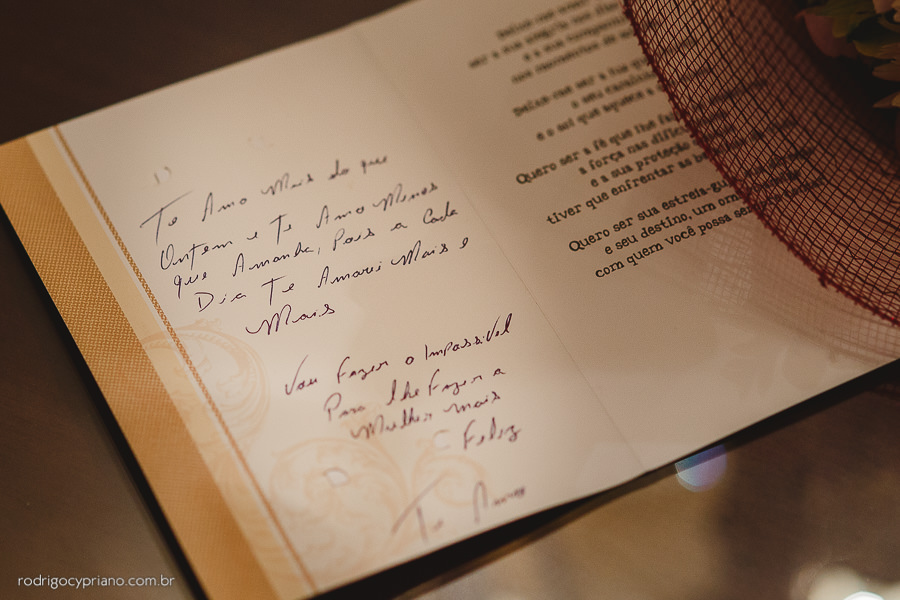 Te Amo Mais do que
Ontem e Te Amo Menos
que Amanha, Pois a Cada
Dia Te Amarei Mais e
Mais
Vou Fazer o Impossível
Para lhe Fazer a
Mulher mais
Feliz
Te Amo
ser a sua
e a sua
nos momentos de
Deixa-me ser a tua
o seu
e o sol que aquece a
Quero ser a fé que lhe
a força nas
e a sua proteção
tiver que enfrentar as
Quero ser sua estreia-gu
e seu destino, um
com quem você possa
rodrigocypriano.com.br